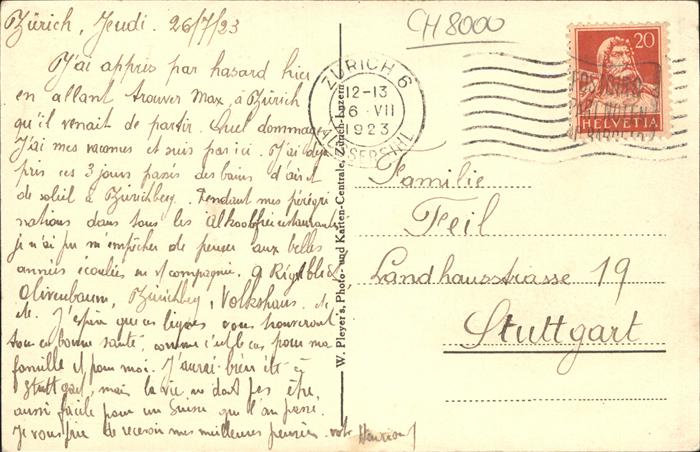 Zürich, Jeudi. 26/7/23
J'ai appris par hasard hier
en allant trouver Max, à Zürich
qu'il venait de partir. Quel dommage
J'ai mes vacances et suis par ici. J'ai déjà
pris ces 3 jours passés des bains d'air et
de soleil à Zürichberg. Pendant mes pérégri
nations dans tous les alkoolfreierestaurants
je n'ai pu m'empêcher de penser aux belles
années écoulées en v/ compagnie. à Rigiblick
Olivenbaum, Zürichberg, Volkshaus. etc
etc. J'espère que ces lignes vous trouveront
tous en bonne santé, comme c'est le cas pour ma
famille et pour moi. J'aurai bien été à
Stuttgart, mais la vie ne doit pas être
aussi facile pour un Suisse qu'il an passé.
Je vous prie de recevoir mes meilleures pensées. votre
CH 8000
ZÜRICH 6
12-13
26 VII
1923
HELVETIA
20
W. Pleyer's, Photo- und Karten-Centrale, Zürich-Luzern.
Familie
Feil
Landhausstrasse 19
Stuttgart